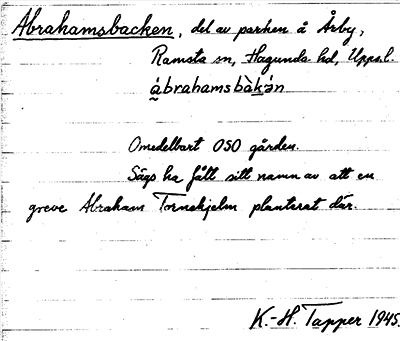 Abrahamsbacken, del av parken å Årby,
Ramsta sn, Hagunda hd, Upps.l.
ábrahamsbàkǝn
Omedelbart OSO gården.
Sägs ha fått sitt namn av att en
greve Abraham Tornekjelm planterat där.
K.-H. Tapper 1945.